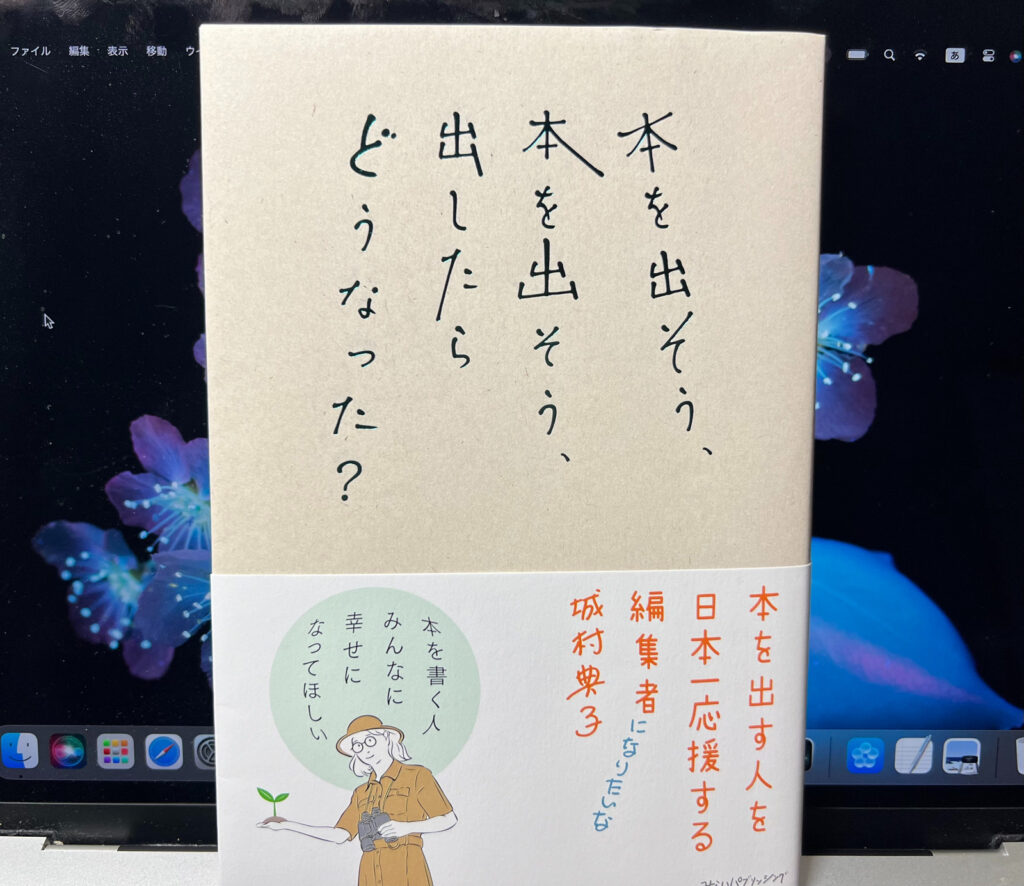 ファイル 編集 表示 移動 ウ
あ
本を出そう、
本を出そう、
出したら
どうなった？
本を出す人を
日本一応援する
編集者になりたいな
城村典子
本を書く人
みんなに
幸せに
なってほしい
みらいパブリッシング